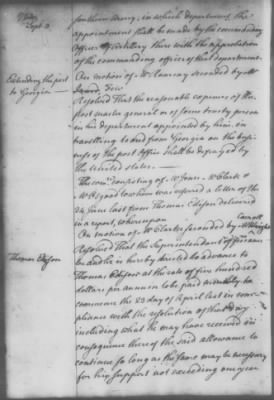 Sept 3
southern Army, in which department the
appointment shall be made by the commanding
Officer of artillery there with the approbation
of the commanding officer of that department.
Extending the post
to Georgia
On motion of Mr Ramsay seconded by Mr
Few
Resolved That the reasonable expences of the
post master general or of some trusty person
in his department appointed by him, in
travelling to and from Georgia on the busi-
ness of the post Office shall be defrayed by
the United States.
The comee. consisting of Mr Few Mr Clark &
Mr to whom was referred a letter of the
24 June last from Thomas Edison delivered
in a report, whereupon
On motion of Mr Clarke seconded by Mr
Thomas Edison
Resolved That the Superintendant of finance
be and he is hereby directed to advance to
Thomas Edison at the rate of five hundred
dollars per annum to be paid monthly to
commence the 23 day of April last in com-
pliance with the resolution of that day
including what he may have received in
consequence thereof the said allowance to
continue so long as the same may be necessary
for his support not exceeding one year